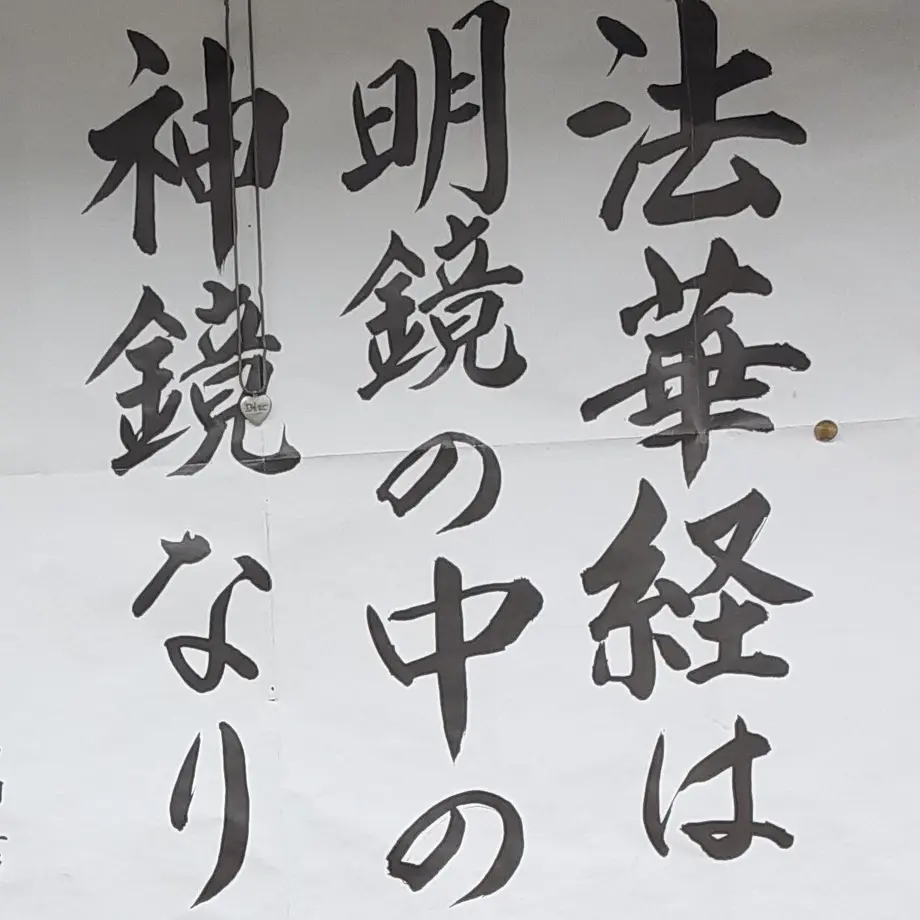 法華経は
明鏡の中の
神鏡なり